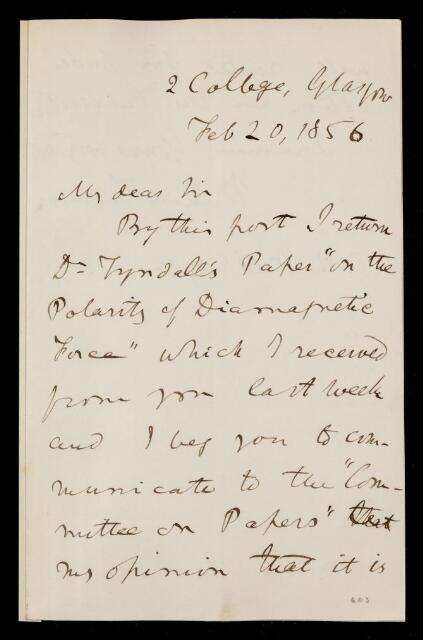 2 College, Glasgow
Feb 20, 1856
My dear Sir
By this post I return
Dr Tyndall's Paper "on the
Polarity of Diamagnetic
Force" which I received
from you last week
and I beg you to com-
municate to the "Com-
mittee on Papers" that
my opinion that it is
603